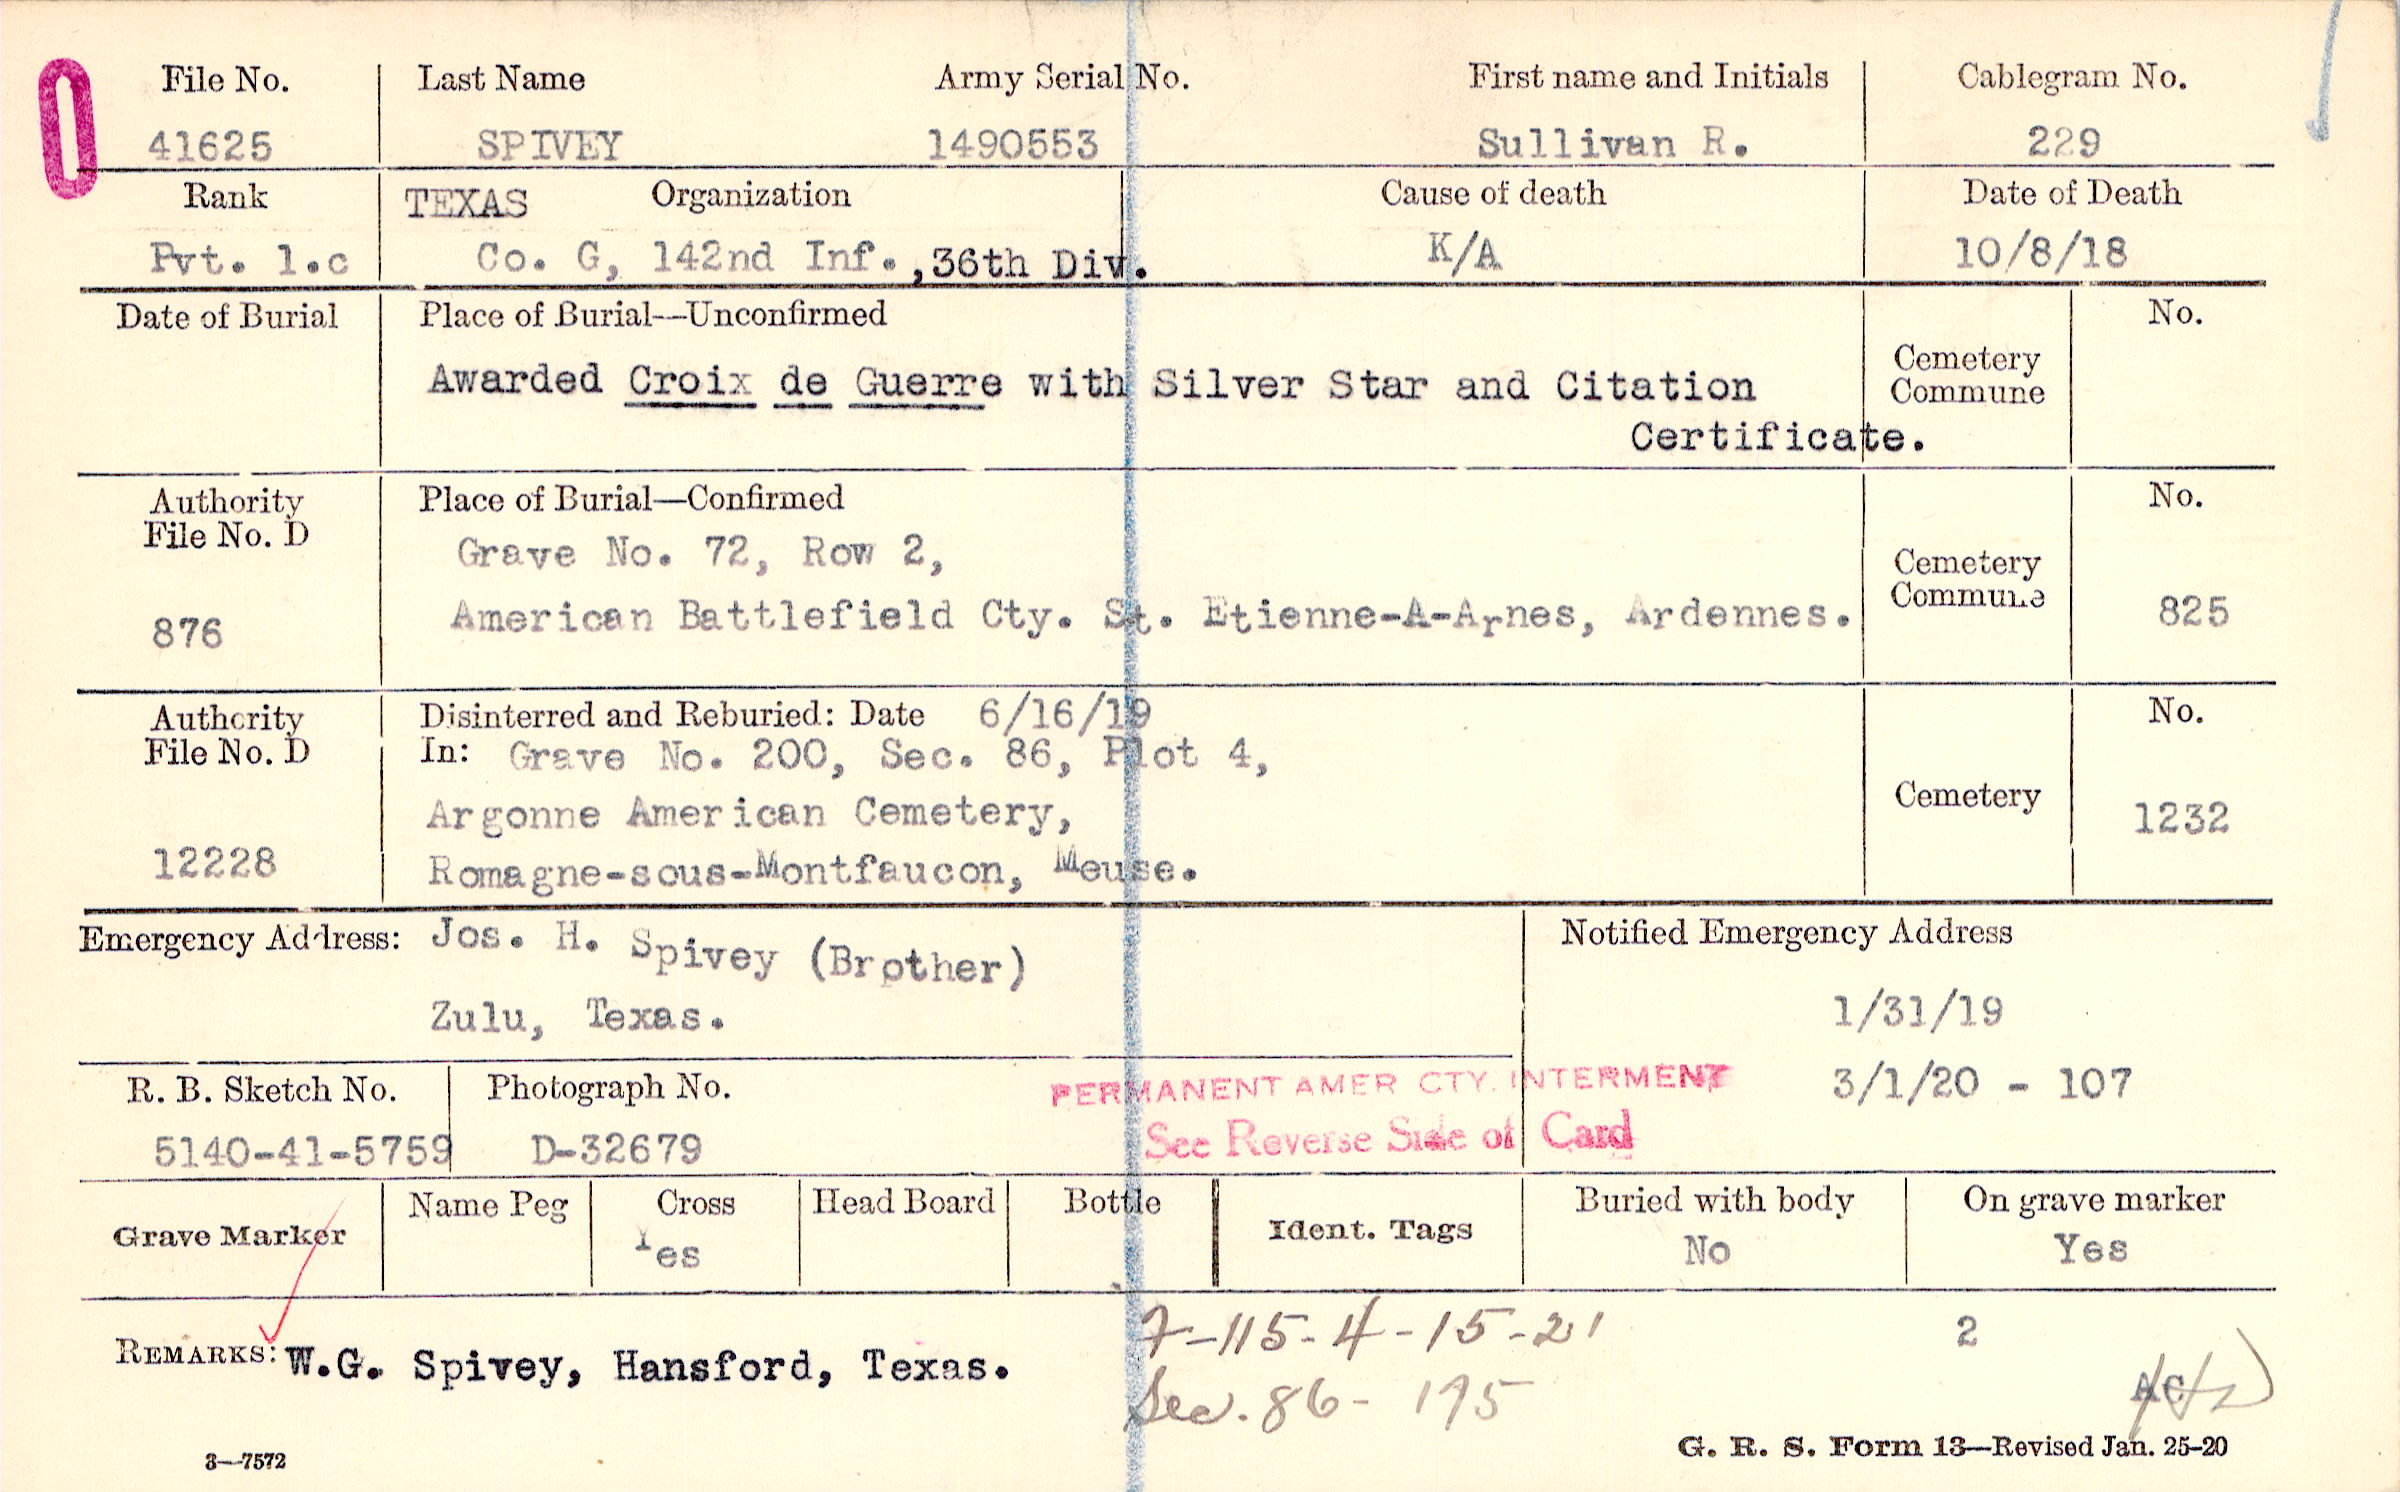 File No. Last Name Army Serial No. First name and Initials Cablegram No.
41625 SPIVEY 1490553 Sullivan R. 229
Rank TEXAS Organization Cause of death Date of Death
Pvt. 1.c Co. G, 142nd Inf.,36th Div. K/A 10/8/18
Date of Burial Place of Burial—Unconfirmed No.
Awarded Croix de Guerre with Silver Star and Citation
Certificate.
Cemetery
Commune
Authority Place of Burial—Confirmed No.
File No. D
Grave No. 72, Row 2,
Cemetery
Commune
876 American Battlefield Cty. St. Etienne-A-Arnes, Ardennes. 825
Authority Disinterred and Reburied: Date 6/16/19 No.
File No. D In: Grave No. 200, Sec. 86, Plot 4,
Argonne American Cemetery, Cemetery 1232
12228 Romagne-sous-Montfaucon, Meuse.
Emergency Address: Jos. H. Spivey (Brother) Notified Emergency Address
Zulu, Texas. 1/31/19
R. B. Sketch No. Photograph No. PERMANENT AMER CTY. INTERMENT 3/1/20 - 107
5140-41-5759 D-32679 See Reverse Side of Card
Grave Marker Name Peg Cross Head Board Bottle Ident. Tags Buried with body On grave marker
Yes No Yes
7-115-4-15-21 2
REMARKS: W.G. Spivey, Hansford, Texas.
Sec. 86- 175
AC
3—7572 G. R. S. Form 13—Revised Jan. 25-20